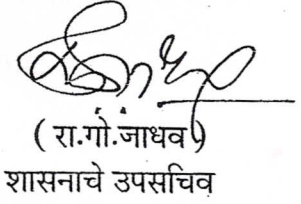 ( रा.गो.जाधव )
शासनाचे उपसचिव